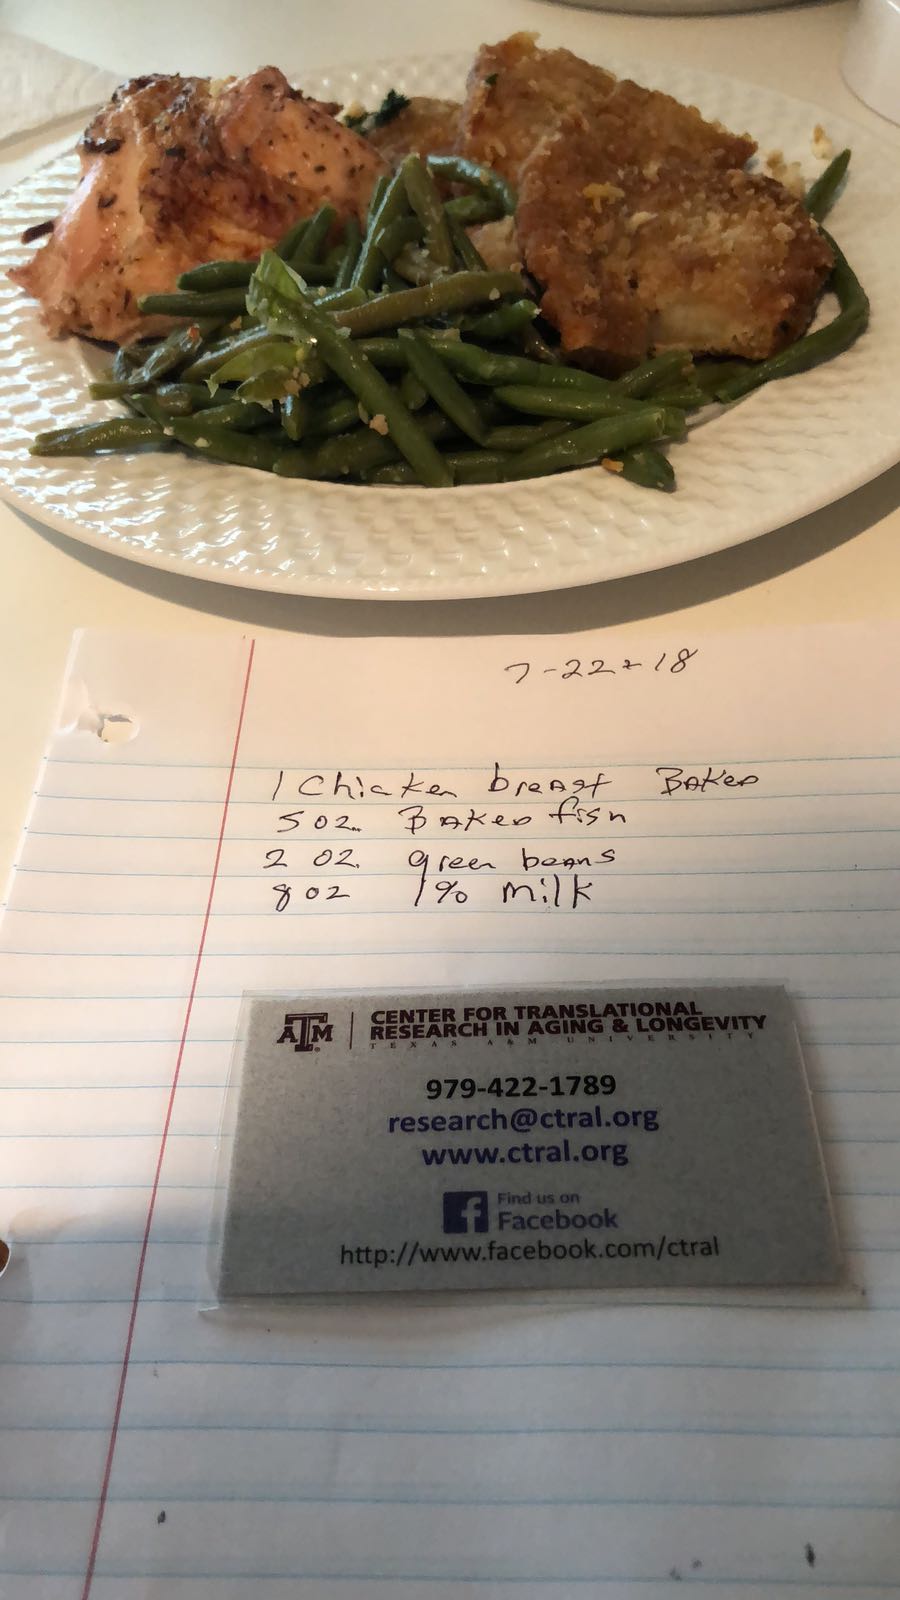 7-22-18
1 Chicken breast Baked
5 oz. Baked fish
2 oz. green beans
8 oz 1% milk
ATM
CENTER FOR TRANSLATIONAL
RESEARCH IN AGING & LONGEVITY
TEXAS A&M UNIVERSITY
979-422-1789
research@ctral.org
www.ctral.org
f Find us on
Facebook
http://www.facebook.com/ctral